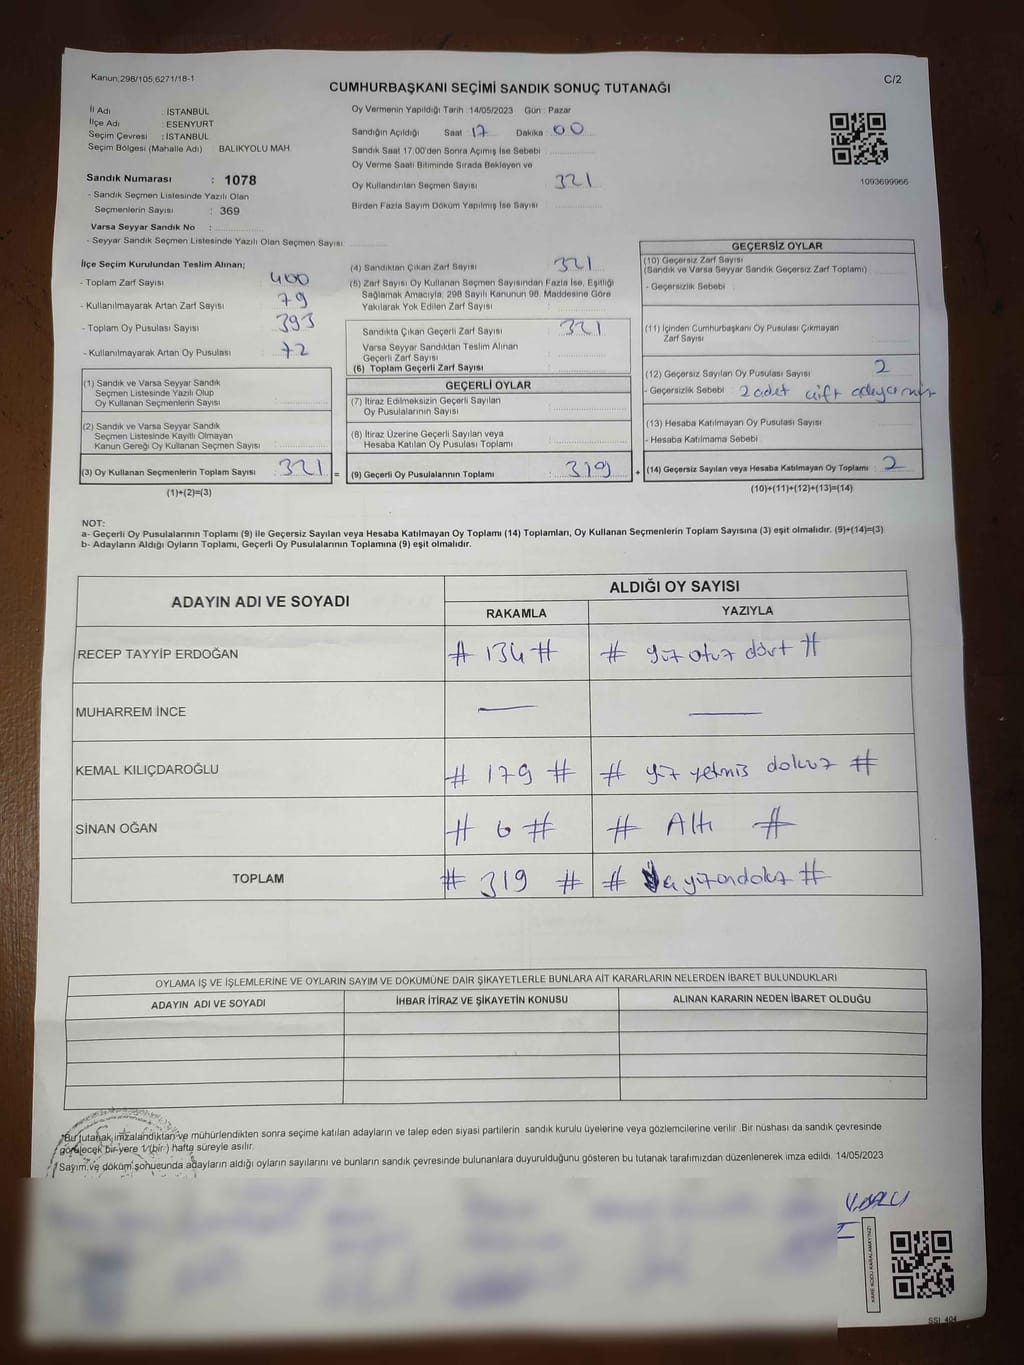 Kanun;298/105,6271/18-1
C/2
CUMHURBAŞKANI SEÇİMİ SANDIK SONUÇ TUTANAĞI
İl Adı : İSTANBUL
İlçe Adı : ESENYURT
Seçim Çevresi : İSTANBUL
Seçim Bölgesi (Mahalle Adı) : BALIKYOLU MAH.
Sandık Numarası : 1078
- Sandık Seçmen Listesinde Yazılı Olan
Seçmenlerin Sayısı : 369
Varsa Seyyar Sandık No :
- Seyyar Sandık Seçmen Listesinde Yazılı Olan Seçmen Sayısı:
Oy Vermenin Yapıldığı Tarih : 14/05/2023 Gün : Pazar
Sandığın Açıldığı Saat 17 Dakika 00
Sandık Saat 17.00'den Sonra Açımış İse Sebebi
Oy Verme Saati Bitiminde Sırada Bekleyen ve
Oy Kullandırılan Seçmen Sayısı 321
Birden Fazla Sayım Döküm Yapılmış İse Sayısı
1093699966
İlçe Seçim Kurulundan Teslim Alınan;
- Toplam Zarf Sayısı : 400
- Kullanılmayarak Artan Zarf Sayısı : 79
- Toplam Oy Pusulası Sayısı : 393
- Kullanılmayarak Artan Oy Pusulası : 72
(1) Sandık ve Varsa Seyyar Sandık
Seçmen Listesinde Yazılı Olup
Oy Kullanan Seçmenlerin Sayısı
(2) Sandık ve Varsa Seyyar Sandık
Seçmen Listesinde Kayıtlı Olmayan
Kanun Gereği Oy Kullanan Seçmen Sayısı
(3) Oy Kullanan Seçmenlerin Toplam Sayısı : 321 =
(1)+(2)=(3)
(4) Sandıktan Çıkan Zarf Sayısı 321
(5) Zarf Sayısı Oy Kullanan Seçmen Sayısından Fazla İse, Eşitliği
Sağlamak Amacıyla; 298 Sayılı Kanunun 98. Maddesine Göre
Yakılarak Yok Edilen Zarf Sayısı
Sandıkta Çıkan Geçerli Zarf Sayısı : 321
Varsa Seyyar Sandıktan Teslim Alınan
Geçerli Zarf Sayısı
(6) Toplam Geçerli Zarf Sayısı
GEÇERLİ OYLAR
(7) İtiraz Edilmeksizin Geçerli Sayılan
Oy Pusulalarının Sayısı
(8) İtiraz Üzerine Geçerli Sayılan veya
Hesaba Katılan Oy Pusulası Toplamı
(9) Geçerli Oy Pusulalarının Toplamı : 319 +
GEÇERSİZ OYLAR
(10) Geçersiz Zarf Sayısı
(Sandık ve Varsa Seyyar Sandık Geçersiz Zarf Toplamı)
- Geçersizlik Sebebi :
(11) İçinden Cumhurbaşkanı Oy Pusulası Çıkmayan
Zarf Sayısı
(12) Geçersiz Sayılan Oy Pusulası Sayısı 2
- Geçersizlik Sebebi 2 adet çift
(13) Hesaba Katılmayan Oy Pusulası Sayısı
- Hesaba Katılmama Sebebi
(14) Geçersiz Sayılan veya Hesaba Katılmayan Oy Toplamı : 2
(10)+(11)+(12)+(13)=(14)
NOT:
a- Geçerli Oy Pusulalarının Toplamı (9) ile Geçersiz Sayılan veya Hesaba Katılmayan Oy Toplamı (14) Toplamları, Oy Kullanan Seçmenlerin Toplam Sayısına (3) eşit olmalıdır. (9)+(14)=(3)
b- Adayların Aldığı Oyların Toplamı, Geçerli Oy Pusulalarının Toplamına (9) eşit olmalıdır.
ADAYIN ADI VE SOYADI
ALDIĞI OY SAYISI
RAKAMLA YAZIYLA
RECEP TAYYİP ERDOĞAN # 134 # # yüz otuz dört #
MUHARREM İNCE — —
KEMAL KILIÇDAROĞLU # 179 # # yüz yetmiş dokuz #
SİNAN OĞAN # 6 # # Altı #
TOPLAM # 319 # # yüzondokuz #
OYLAMA İŞ VE İŞLEMLERİNE VE OYLARIN SAYIM VE DÖKÜMÜNE DAİR ŞİKAYETLERLE BUNLARA AİT KARARLARIN NELERDEN İBARET BULUNDUKLARI
ADAYIN ADI VE SOYADI İHBAR İTİRAZ VE ŞİKAYETİN KONUSU ALINAN KARARIN NEDEN İBARET OLDUĞU
*Bu tutanak imzalandıktan ve mühürlendikten sonra seçime katılan adayların ve talep eden siyasi partilerin sandık kurulu üyelerine veya gözlemcilerine verilir .Bir nüshası da sandık çevresinde
görülecek bir yere 1 (bir) hafta süreyle asılır.
*Sayım ve döküm sonucunda adayların aldığı oyların sayılarını ve bunların sandık çevresinde bulunanlara duyurulduğunu gösteren bu tutanak tarafımızdan düzenlenerek imza edildi. 14/05/2023
KARE KODU KARALAMAYINIZ!
SSI_404